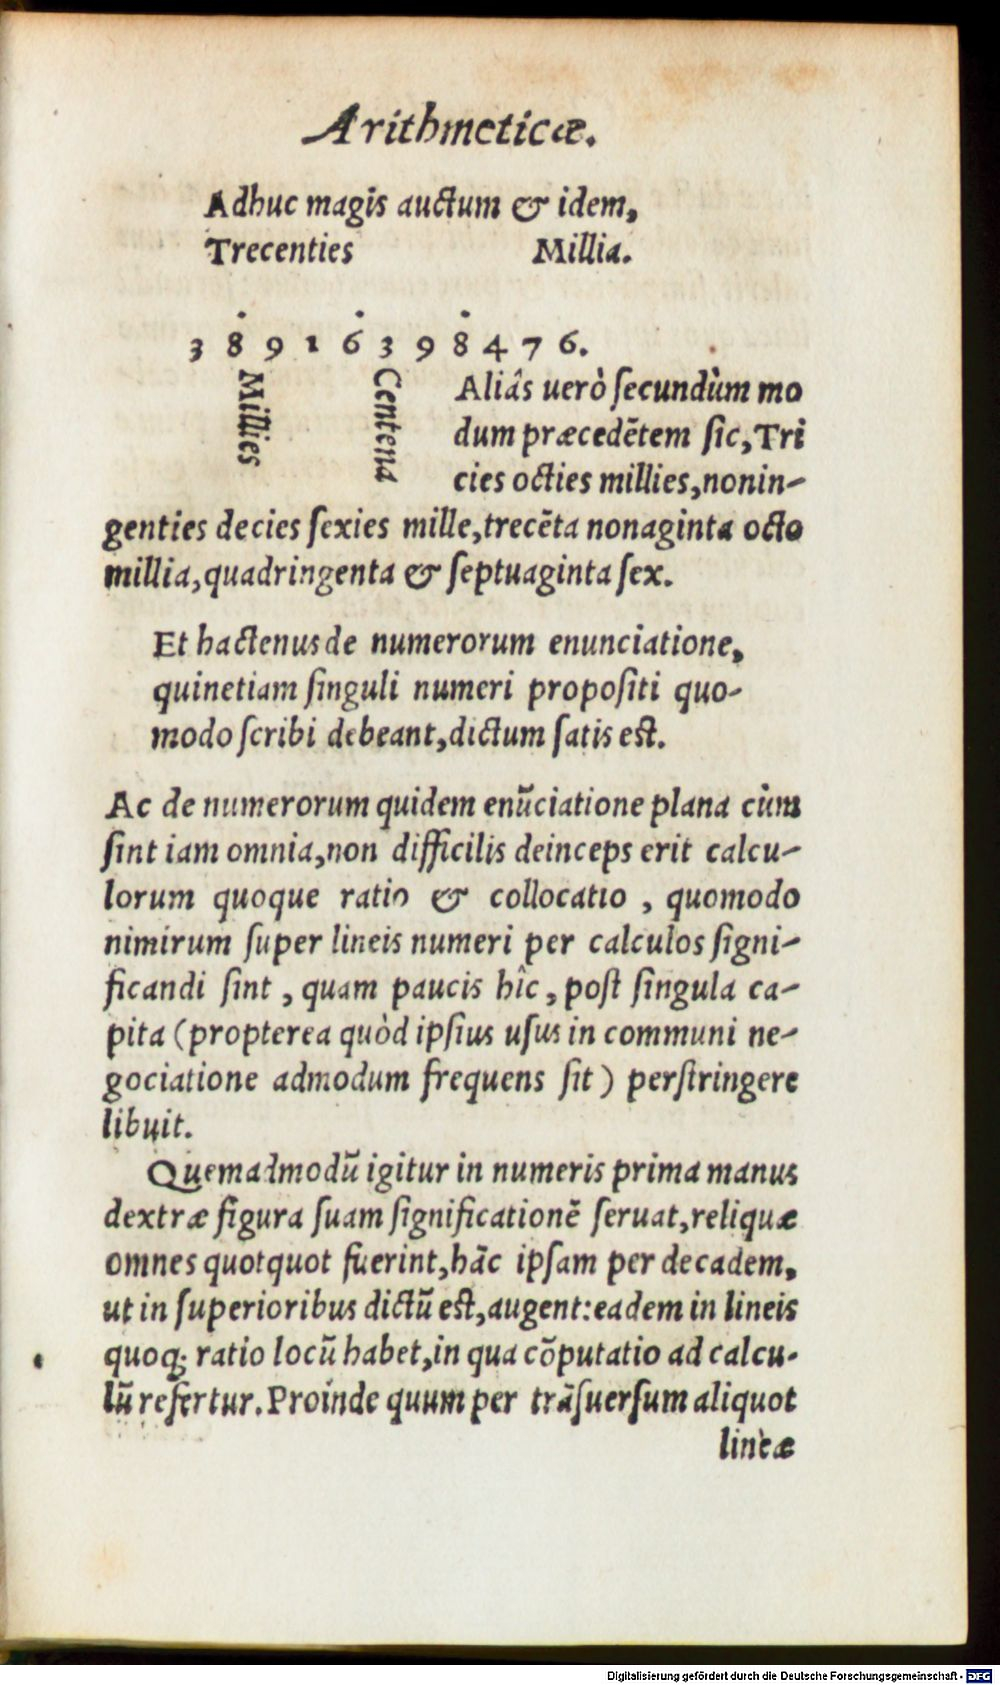 Arithmeticæ.
Adhuc magis auctum & idem,
Trecenties Millia.
3 8 9 1 6 3 9 8 4 7 6.
Millies
Centena
Aliâs uerò ſecundùm mo
dum præcedẽtem ſic, Tri
cies octies millies, nonin-
genties decies ſexies mille, trecẽta nonaginta octo
millia, quadringenta & ſeptuaginta ſex.
Et hactenus de numerorum enunciatione,
quinetiam ſinguli numeri propoſiti quo-
modo ſcribi debeant, dictum ſatis eſt.
Ac de numerorum quidem enũciatione plana cùm
ſint iam omnia, non difficilis deinceps erit calcu-
lorum quoque ratio & collocatio , quomodo
nimirum ſuper lineis numeri per calculos ſigni-
ficandi ſint , quam paucis hîc , poſt ſingula ca-
pita (propterea quòd ipſius uſus in communi ne-
gociatione admodum frequens ſit ) perſtringere
libuit.
Quemadmodũ igitur in numeris prima manus
dextræ figura ſuam ſignificationẽ ſeruat, reliquæ
omnes quotquot fuerint, hãc ipſam per decadem,
ut in ſuperioribus dictũ eſt, augent: eadem in lineis
quoq; ratio locũ habet, in qua cõputatio ad calcu-
lũ refertur. Proinde quum per trãſuerſum aliquot
lineæ
Digitalisierung gefördert durch die Deutsche Forschungsgemeinschaft - DFG